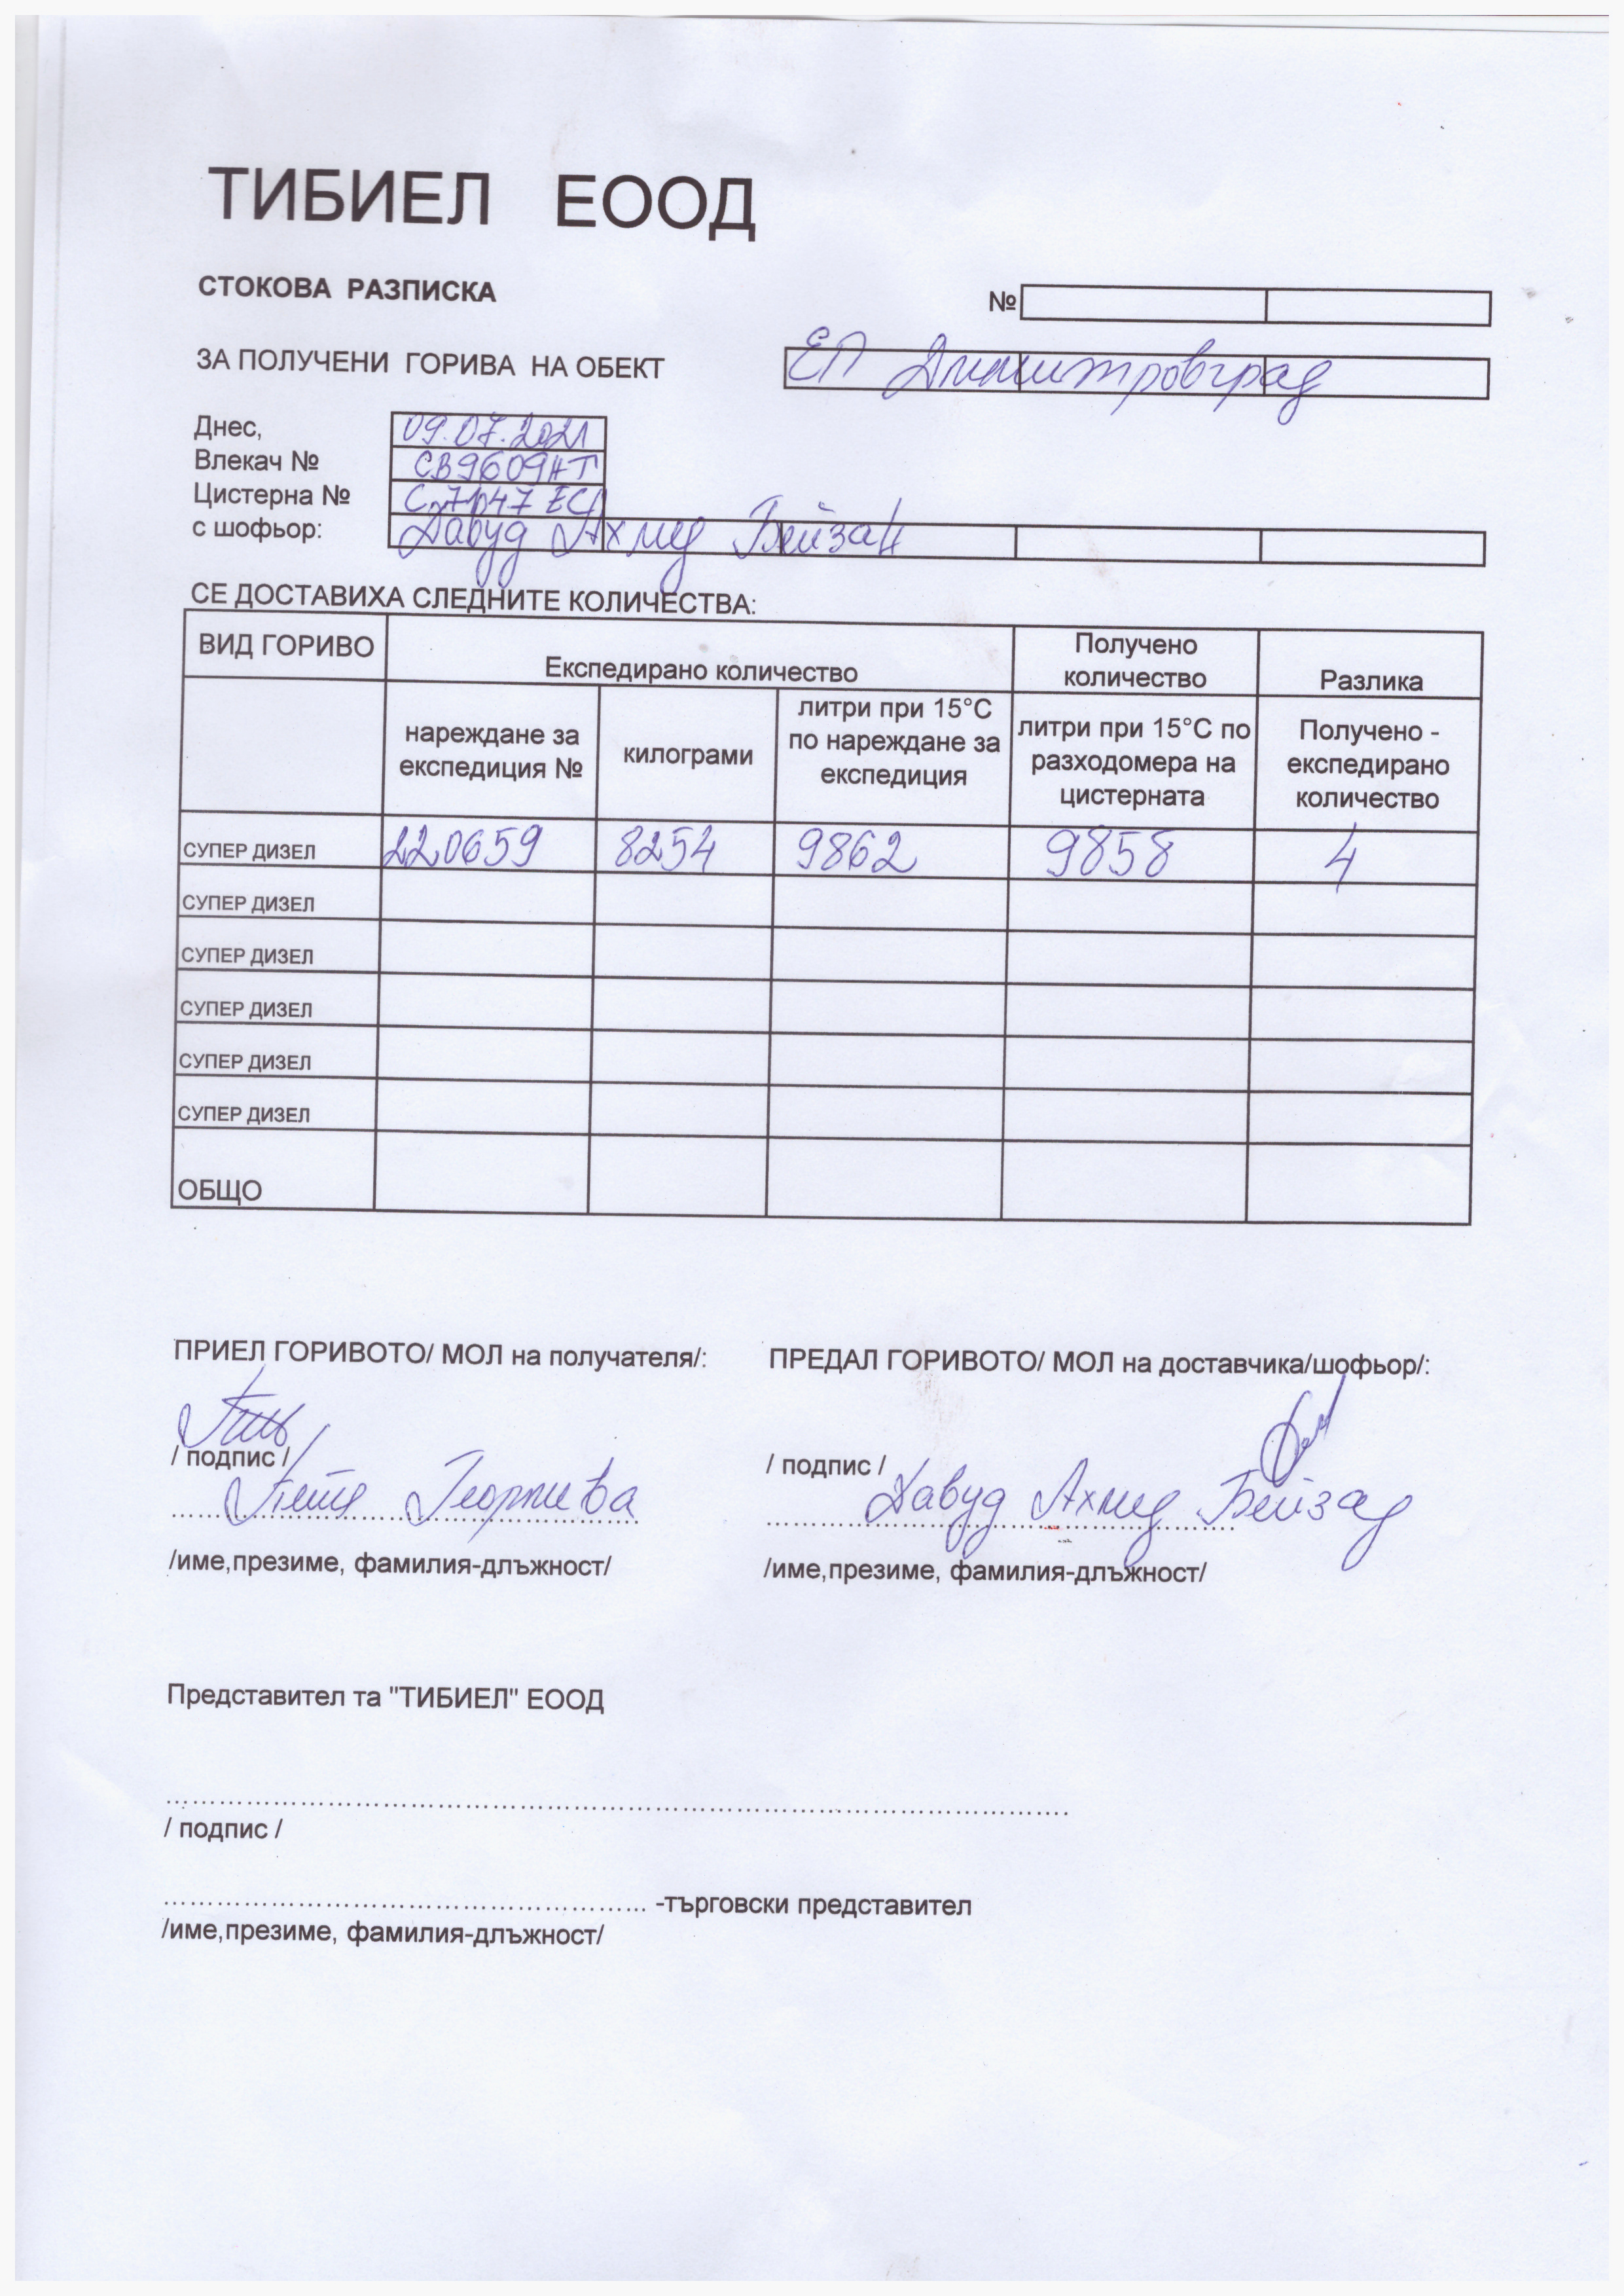 ТИБИЕЛ ЕООД
СТОКОВА РАЗПИСКА №
ЗА ПОЛУЧЕНИ ГОРИВА НА ОБЕКТ ЕП Димитровград
Днес, 09.07.2021
Влекач № СВ9609НТ
Цистерна №
с шофьор: Давуд Ахмед
СЕ ДОСТАВИХА СЛЕДНИТЕ КОЛИЧЕСТВА:
ВИД ГОРИВО Експедирано количество Получено количество Разлика
нареждане за експедиция № килограми литри при 15°C по нареждане за експедиция литри при 15°C по разходомера на цистерната Получено - експедирано количество
СУПЕР ДИЗЕЛ 220659 8254 9862 9858 4
СУПЕР ДИЗЕЛ
СУПЕР ДИЗЕЛ
СУПЕР ДИЗЕЛ
СУПЕР ДИЗЕЛ
СУПЕР ДИЗЕЛ
ОБЩО
ПРИЕЛ ГОРИВОТО/ МОЛ на получателя/: ПРЕДАЛ ГОРИВОТО/ МОЛ на доставчика/шофьор/:
/ подпис / / подпис /
Петя Георгиева Давуд Ахмед
/име,презиме, фамилия-длъжност/ /име,презиме, фамилия-длъжност/
Представител та "ТИБИЕЛ" ЕООД
/ подпис /
-търговски представител
/име,презиме, фамилия-длъжност/